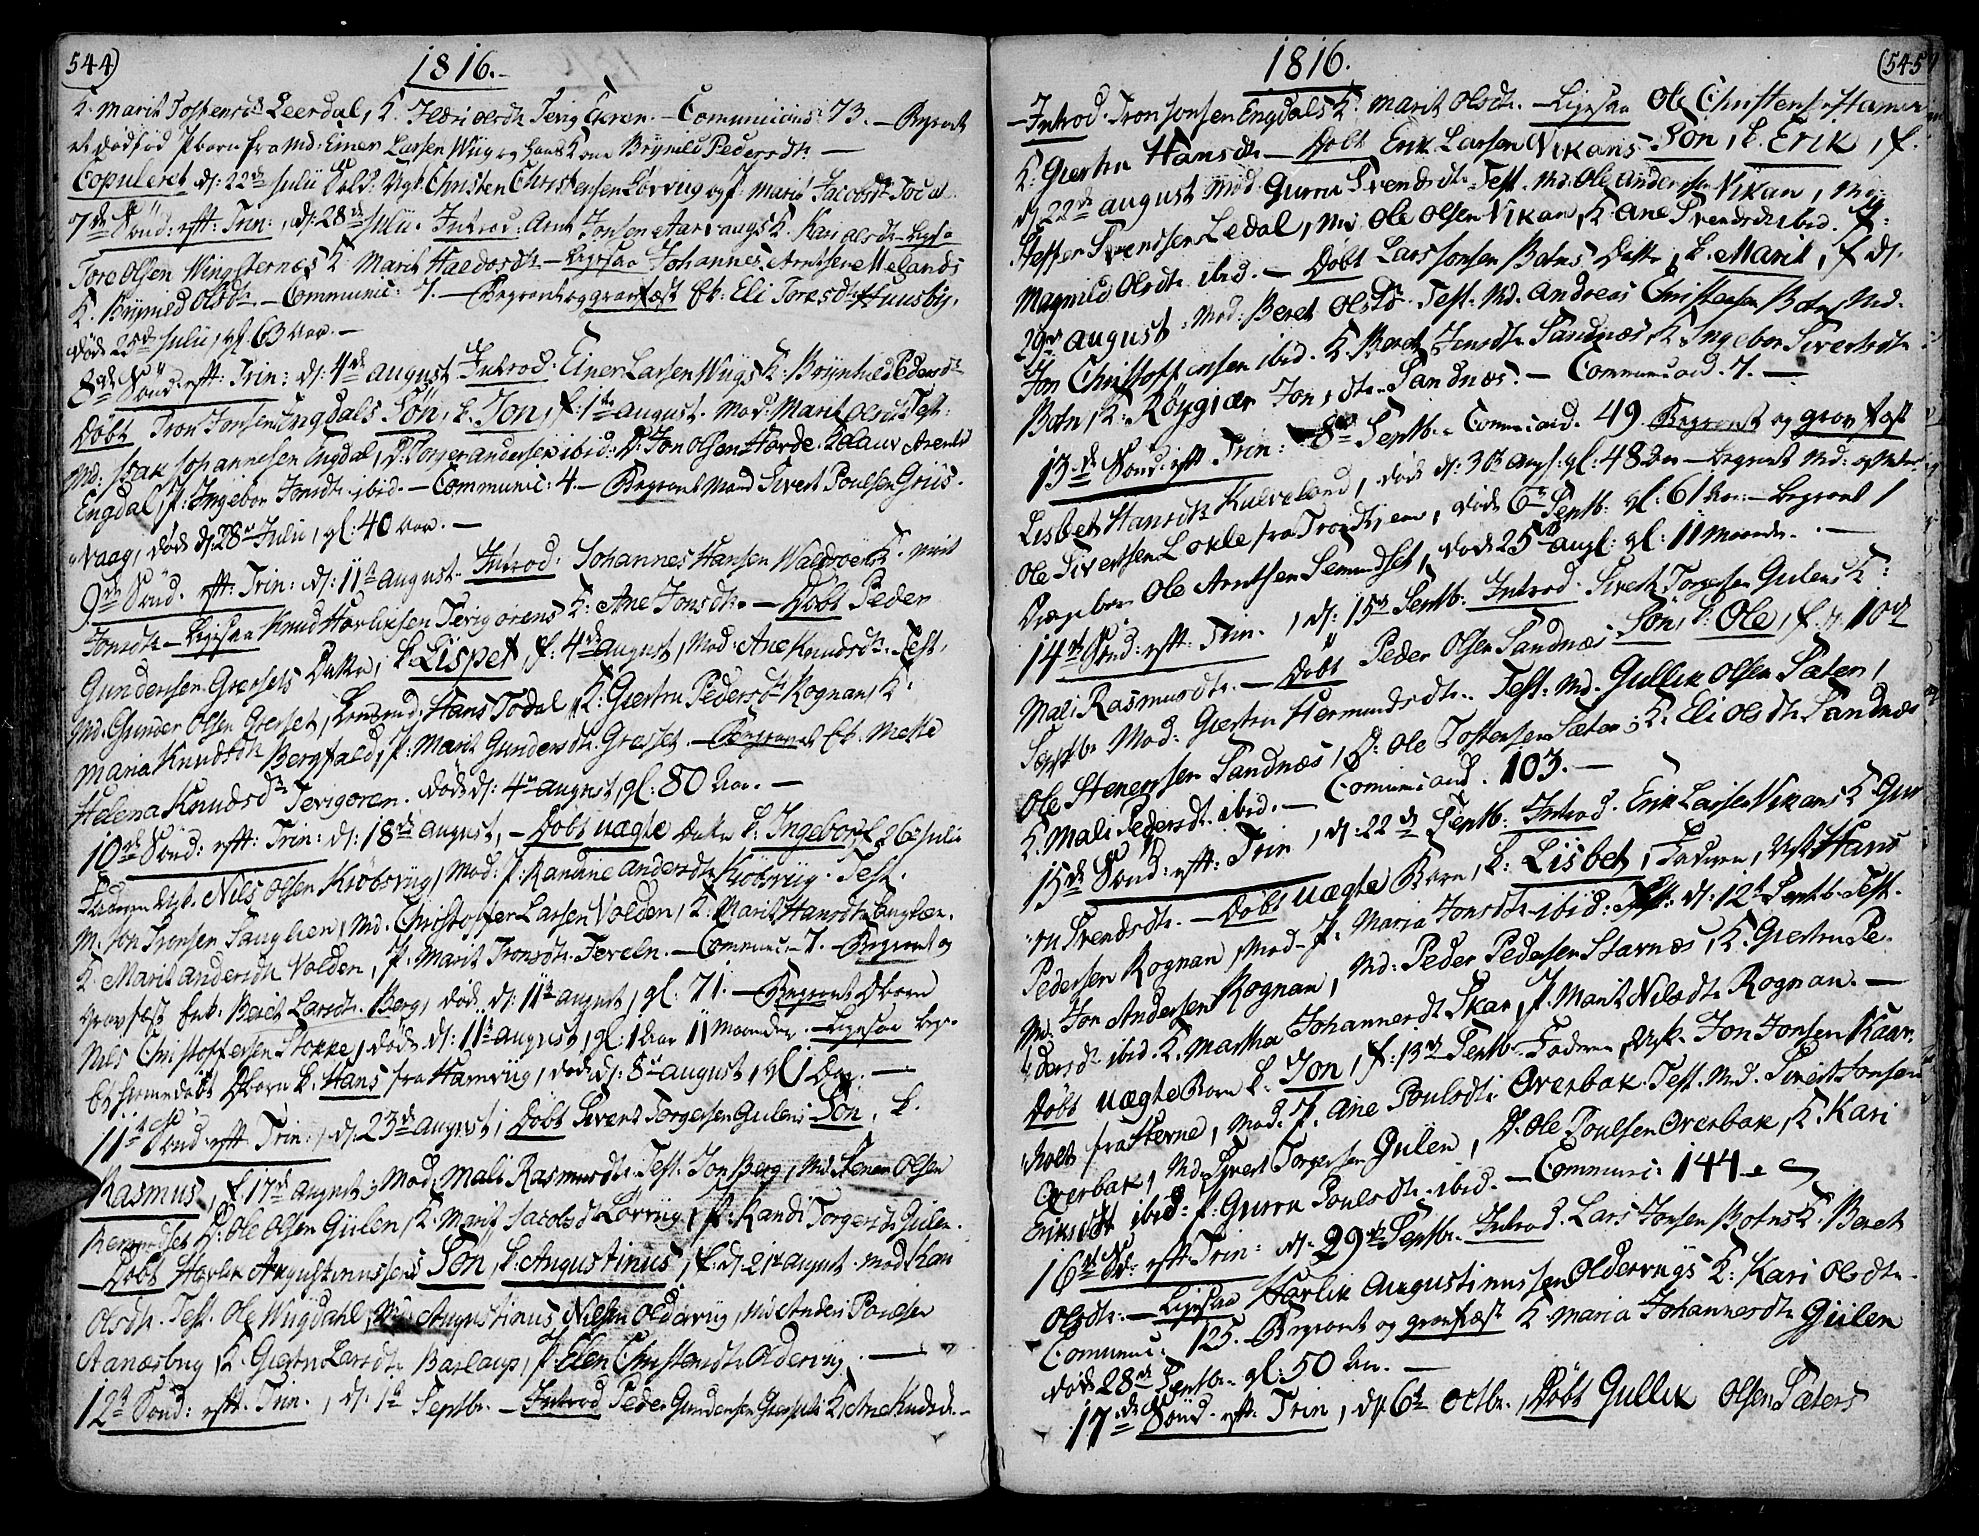 544)
1816.
K. Marit Tostensdt Leerdal, K. Olsdt. Communicants: 73. — Begravet
et dødfød Pbarn fra Md: Einer Larsen Wiig og hans Kone Brynild Pedersdt. —
Copuleret d: 22de Julii Sold: Ugk. Christen Christensen Lørvüg og P. Marit Jacobsdt
7de Sönd: eft: Trin:, d: 28de Julii. Introd: Arnt Jonsen Aarvaags K. Kari Olsdt. Ligesaa
Tore Olsen Wingsternes K. Marit Haldosdt. — Ligesaa Johannes Arntsen Melands
K. Brynild Olsdt. — Communic: 7. — Begravet og gravfæst Ek: Eli Toresdt Huusbÿ,
døde 25de Julii, gl. 63 Aar. —
8de Sönd: eft: Trin: d: 4de August Introd: Einer Larsen Wiigs K: Brynhild Pedersdt
Döbt Tron Jonsen Engdals Sön, k. Jon, f: 1te August. Mod: Marit Olsdt. Test:
Md: Isak Johannesen Engdal, D: Torger Andersen ibid: D: Jon Olsen Harde. K. Arentsd
Engdal, P: Ingebor Jonsdt ibid. — Communic: 4. — Begravet Mand Sivert Poulsen Griis-
vaag, døde d: 28de Julii, gl: 40 Aar. —
9de Sönd. eft: Trin: d: 11te August. Introd: Johannes Hansen Waldsöens K. Marit
Jonsdt. — Ligesaa Knud Harliksen Tevigorens K: Ane Jonsdt. — Döbt Peder
Gundersen Gresets Datter, k. Lispet, f. 4de August, Mod: Ane Knudsdt. Test.
Md. Gunder Olsen Greset, Hans Todal, K: Giertru Pedersdt Rognan, K:
Maria Knudsdt Bergfald, P. Marit Gundersdt. Greset. — Begravet Ek. Mette
Helena Knudsdt Tevigoren. døde d: 4de August, gl: 80 Aar. —
10de Sönd: eft: Trin: d: 18de August, — Döbt uægte Datter k. Ingebor, f. 26de Julii
Faderen Ugk. Nils Olsen Kiöbsvüg, Mod: P. Randine Andersdt Kiöbsvüg. Test.
M. Jon Tronsen Fauglien, Md. Christoffer Larsen Volden, K. Marit Hansdt Fauglien.
K. Marit Andersdt Volden, P. Marit Tronsdt. — Commun: 7. — Begravet og
gravfæst Enk. Berit Larsdt. Berg, døde d: 11te August, gl: 71. — Begravet Dbarn
Nils Christoffersen Stokke, døde d: 11te August, gl: 1 Aar 11 Maaneder. Ligesaa
et hiemedöbt Dbarn k. Hans fra Hamrüg, døde d: 8de August, gl. 1 Dag. —
11te Sönd: eft: Trin:, d: 23de August, Döbt Sivert Torgersen Gulens Sön, k.
Rasmus, f. 17de August; Mod: Mali Rasmusdt. Test. Jon Berg, Md. Stener Olsen
D. Ole Olsen Gülen, K. Marit Jacobsd Lörvüg, P. Randi Torgersdt Gülen.
— Döbt Harlik Augustinussens Sön, k. Augustinus, f. d. 21de August. Mod Kari
Olsdt. Test. Ole Wiigdahl, Md. Augustinus Nilsen Oldervüg, Md. Anders Poulsen
Aanesbug, K. Giertru Larsdt. Baslaup, P. Elen Christensdt Oldervüg. —
12te Sönd: eft: Trin., d: 1te Septbr. — Introd Peder Gundersen Gresets K. Ane Knudsd.
(545
1816.
— Introd. Tron Jonsen Engdals K. Marit Olsdt. — Ligesaa Ole Christensen
K: Giertru Hansdt. — Döbt Erik Larsen Vikans Sön, k. Erik, f.
d. 22de August Mod Gurru Svendsdt. Test. Md. Ole Andersen Vikan, Md.
Steffen Svendsen Ledal, Md. Ole Olsen Vikan, K. Ane Svendsdt ibid. P:
Magnild Olsdt. ibid. — Döbt Lars Jonsen Botns Datter, k. Marit, f. d.
29de August. Mod: Beret Olsdt. Test. Md. Andreas Christensen Botn, Md.
Jon Christoffersen ibid. K. Beret Jensdt. Sandnæs, K. Ingebor Sivertsdt.
Botn, K. Röggiær Jonsdt. Sandnæs. — Communicand. 7. —
13de Sönd. eft Trin: 8de Septb. Communicand. 49. Begravet og gravfæst
Lisbet Hansdt. Kulveland, døde d: 30 Aug. gl: 48 Aar — Begravet Md:
Ole Sivertsen Lokle fra Trondhjem, døde 6te Septb: gl: 61 Aar — Begravet
Ole Arntsen Semundset, døde 25de Aug: gl: 11 Maaneder. —
14de Sönd: eft: Trin., d: 15de Septb: Introd. Sivert Torgersen Gulens K:
Mali Rasmusdt. — Döbt Peder Olsen Sandnæs Sön, k. Ole, f. d. 10de
Septbr. Mod: Giertru Hermundsdt. Test: Md. Gullik Olsen Sæter,
Ole Stenersen Sandnæs, D: Ole Tostensen Sæter, K. Eli Olsdt Sandnæs
K. Mali Pedersdt. ibid. — Communicand. 103. —
15de Sönd: eft: Trin, d: 22de Septb. Introd. Erik Larsen Vikans K. Gur
ru Svendsdt. — Döbt uægte Barn, k. Lisbet, Faderen, Ugk. Hans
Pedersen Rognan, Mod- P. Maria Jonsdt. ibid: f. d: 12te Septb. Test.
Md. Jon Andersen Rognan, Md: Peder Pedersen Starnæs, K. Giertru Pe-
dersdt ibid. K. Martha Johannesdt Skar, P. Marit Nilsdt. Rognan. —
Döbt uægte Barn k. Jon, f: 13de Septb. Faderen, Ugk. Jon Jonsen
fra Stærne, Mod. P. Ane Poulsdt. Overbak. Test. Md. Sivert Jonsen
Overbak, Md. Sivert Torgersen Gülen, D. Ole Poulsen Overbak, K. Kari
Eriksdt ibid: P. Gurru Poulsdt. ibid. — Communic: 144.
16de S: eft: Trin: d: 29de Septbr. Introd. Lars Jonsen Botns K. Beret
Olsdt. — Ligesaa Harlik Augustinussen Oldervügs K: Kari Olsdt.
Communic: 125. Begravet og gravfæst K. Maria Johannesdt Gülen
døde 28de Septbr. gl: 50 Aar. —
17de Sönd. eft: Trin, d: 6te Octbr., Döbt Gullik Olsen Sæters